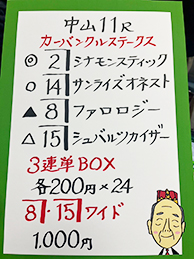 中山11R
カーバンクルステークス
◎ 2 シナモンスティック
○ 14 サンライズオネスト
▲ 8 ファロロジー
△ 15 シュバルツカイザー
3連単BOX
各200円×24
8・15ワイド
1.000円